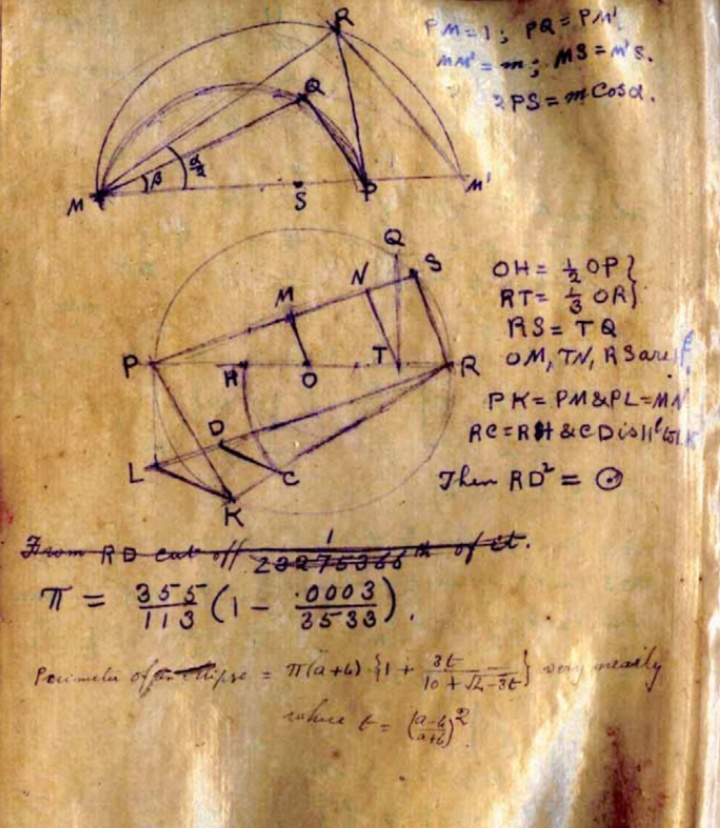 R
PM=1; PQ=PM'
MM'=m; MS=M'S.
2PS=m Cosα.
Q
β
α/2
M
S
P
M'
Q
S
N
M
P
H
O
T
R
D
L
C
K
OH = 1/2 OP}
RT = 1/3 OR}
RS = TQ
OM, TN, RS are ||l.
PK = PM & PL = MN
RC = RH & CD is ||l to LK
Then RD² = ⊙
From RD cut off 1/23275366 th of it.
π = 355/113 (1 − .0003/3533).
Perimeter of an ellipse = π(a+b) {1 + 3t/(10+√4−3t)} very nearly
where t = ((a−b)/(a+b))²